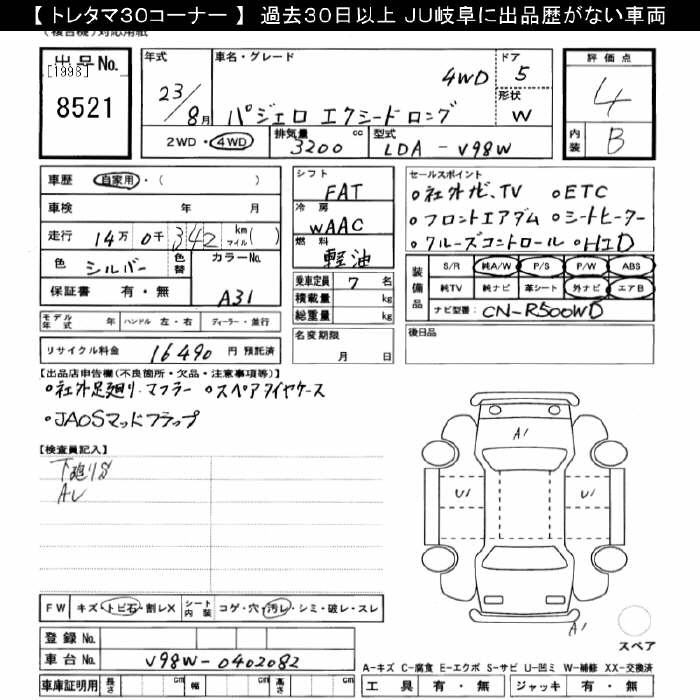 【 トレタマ30コーナー 】 過去30日以上 JU岐阜に出品歴がない車両
出品No.
[1998]
8521
年式
23/8月
車名・グレード
4WD
パジェロ エクシードロング
ドア
5
形状
W
評価点
4
内装
B
2WD・4WD
排気量
3200 cc
型式
LDA - V98W
車歴 自家用・( )
車検 年 月
走行 14万 0千 342 km マイル( )
色 シルバー 色替 カラーNo.
A31
保証書 有・無
モデル年式 年 ハンドル 左・右 ディーラー・並行
リサイクル料金 16490 円 預託済
シフト
FAT
冷房
WAAC
燃料
軽油
乗車定員 7 名
積載量 kg
総重量 kg
名変期限
月 日
セールスポイント
○社外ナビ、TV ○ETC
○フロントエアダム ○シートヒーター
○クルーズコントロール ○HID
装備品
S/R 純A/W P/S P/W ABS
純TV 純ナビ 革シート 外ナビ エアB
ナビ型番: CN-R500WD
後日品
【出品店申告欄(不良箇所・欠品・注意事項等)】
○社外足廻り、マフラー ○スペアタイヤケース
○JAOSマッドフラップ
【検査員記入】
下廻りS
Aレ
A1
U1
U1
A1
スペア
FW キズ・トビ石・割レX シート内装 コゲ・穴・汚レ・シミ・破レ・スレ
登録No.
車台No. V98W-0402082
車庫証明用 長さ cm 幅 cm 高さ cm
A-キズ C-腐食 E-エクボ S-サビ U-凹ミ W-補修 XX-交換済
工具 有・無 ジャッキ 有・無